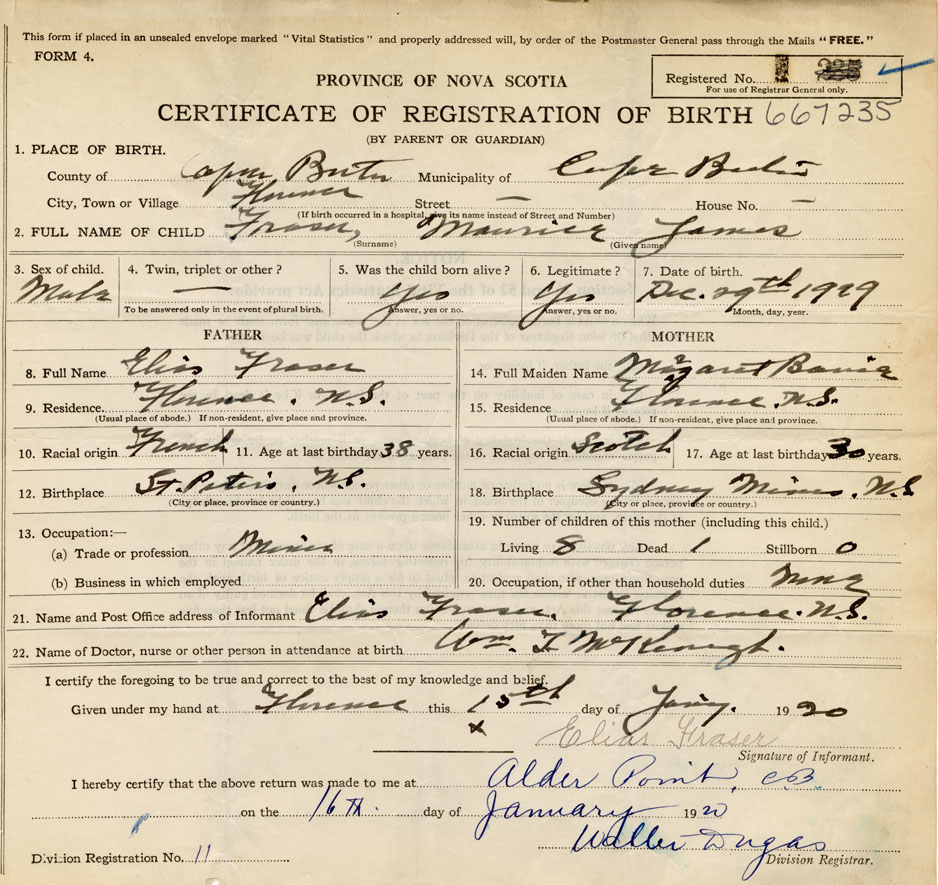 This form if placed in an unsealed envelope marked "Vital Statistics" and properly addressed will, by order of the Postmaster General pass through the Mails "FREE."
FORM 4.
Registered No.
For use of Registrar General only.
PROVINCE OF NOVA SCOTIA
CERTIFICATE OF REGISTRATION OF BIRTH 667235
(BY PARENT OR GUARDIAN)
1. PLACE OF BIRTH.
County of Cape Breton Municipality of Cape Breton
City, Town or Village Florence Street — House No. —
(If birth occurred in a hospital, give its name instead of Street and Number)
2. FULL NAME OF CHILD Fraser, Maurice James
(Surname) (Given name)
3. Sex of child. 4. Twin, triplet or other? 5. Was the child born alive? 6. Legitimate? 7. Date of birth.
Male — Yes Yes Dec. 29th 1929
To be answered only in the event of plural birth. Answer, yes or no. Answer, yes or no. Month, day, year.
FATHER
8. Full Name Elias Fraser
9. Residence Florence, N.S.
(Usual place of abode.) If non-resident, give place and province.
10. Racial origin French 11. Age at last birthday 38 years.
12. Birthplace St. Peters, N.S.
(City or place, province or country.)
13. Occupation:—
(a) Trade or profession Miner
(b) Business in which employed
MOTHER
14. Full Maiden Name Margaret
15. Residence Florence, N.S.
(Usual place of abode.) If non-resident, give place and province.
16. Racial origin Scotch 17. Age at last birthday 30 years.
18. Birthplace Sydney Mines, N.S
(City or place, province or country.)
19. Number of children of this mother (including this child.)
Living 8 Dead 1 Stillborn 0
20. Occupation, if other than household duties None
21. Name and Post Office address of Informant Elias Fraser, Florence. N.S.
22. Name of Doctor, nurse or other person in attendance at birth Wm. F McKeough.
I certify the foregoing to be true and correct to the best of my knowledge and belief.
Given under my hand at Florence this 15th day of Jany. 1930
x
Elias Fraser
Signature of Informant.
I hereby certify that the above return was made to me at Alder Point, CB.
on the 16TH. day of January 19
Walter Dugas
Division Registrar.
Division Registration No. 11